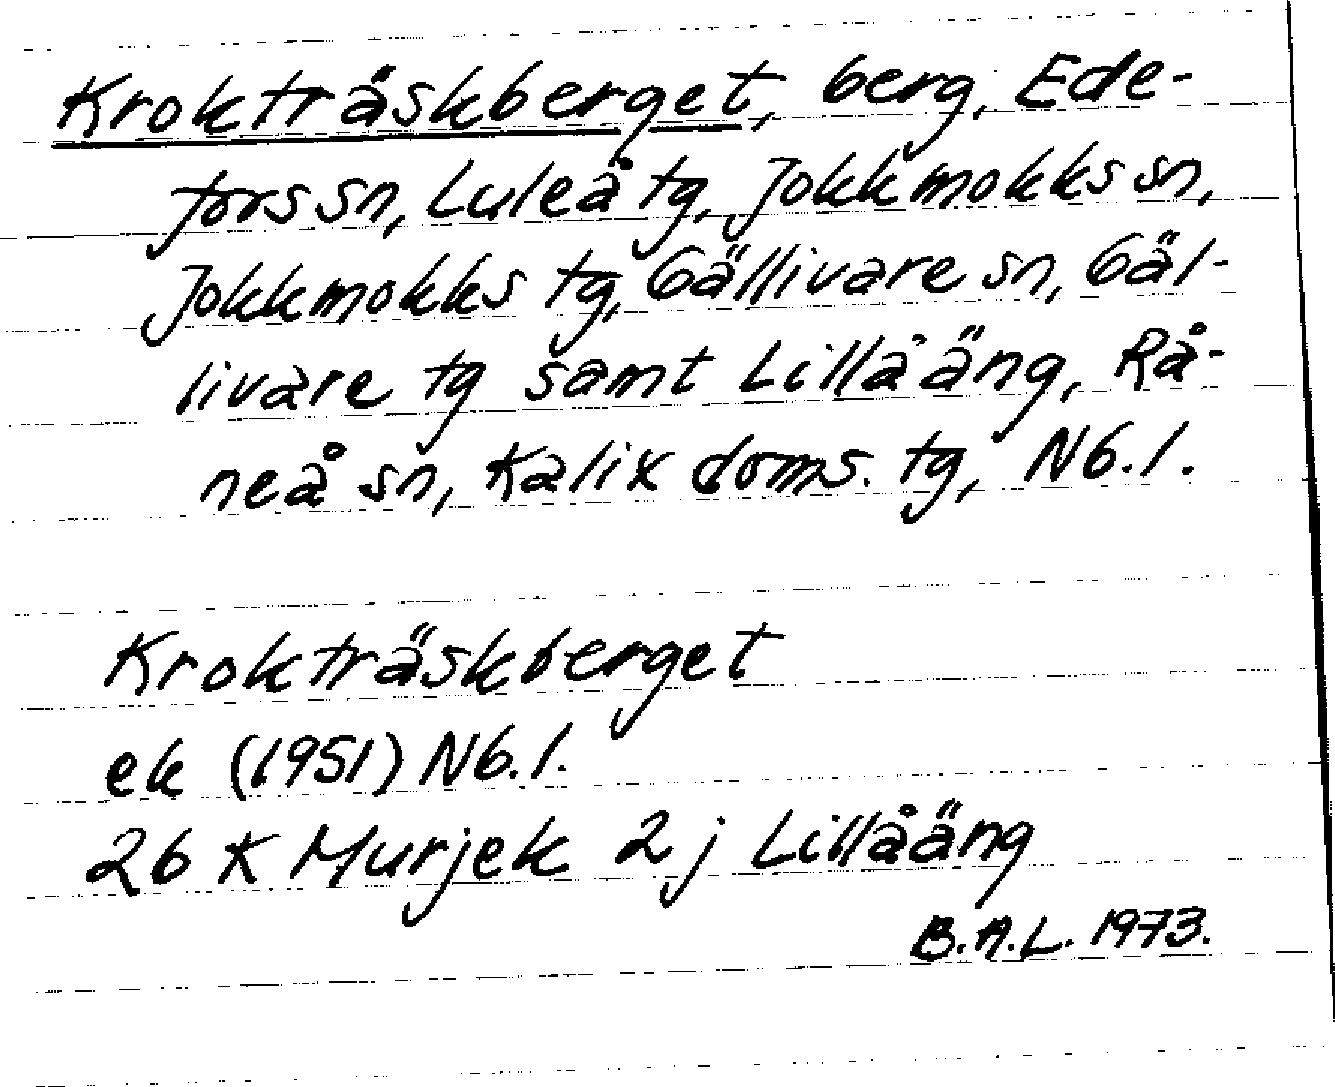 Krokträskberget, berg, Ede-
fors sn, Luleå tg, Jokkmokks sn,
Jokkmokks tg, Gällivare sn, Gäl-
livare tg samt Lillåäng, Rå-
neå sn, Kalix doms. tg, Nb. l.
Krokträskberget
ek (1951) Nb. l.
26 K Murjek 2 j Lillåäng
B.A.L. 1973.